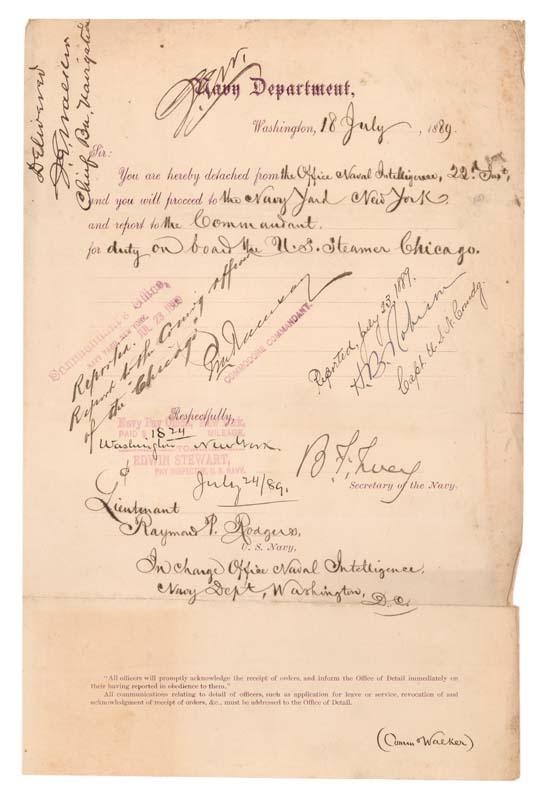 Delivered
J G Walker
Chief Bu. Navigation
Navy Department,
Washington, 18 July, 1889.
Sir:
You are hereby detached from the Office Naval Intelligence, 22d Inst,
and you will proceed to the Navy Yard New York
and report to the Commandant.
for duty on board the U.S. Steamer Chicago.
Commandant's Office,
NAVY YARD, NEW YORK.
JUL 23 1889
Reported.
Report to the Comg officer
of the "Chicago"
COMMODORE COMMANDANT.
Reported, July 23, 1889.
H. B. Robeson
Capt. U.S.N. Comdg.
Respectfully,
Navy Pay Office, NEW YORK,
PAID $ 18 24 MILEAGE,
Washington
TO
New York
EDWIN STEWART,
PAY INSPECTOR, U. S. NAVY.
July 24/89.
B. F. Tracy
Secretary of the Navy.
Lieutenant
Raymond P. Rodgers,
U. S. Navy,
In charge Office Naval Intelligence.
Navy Dept, Washington,
D.C.
"All officers will promptly acknowledge the receipt of orders, and inform the Office of Detail immediately on
their having reported in obedience to them."
All communications relating to detail of officers, such as application for leave or service, revocation of and
acknowledgment of receipt of orders, &c., must be addressed to the Office of Detail.
(Comm o Walker)